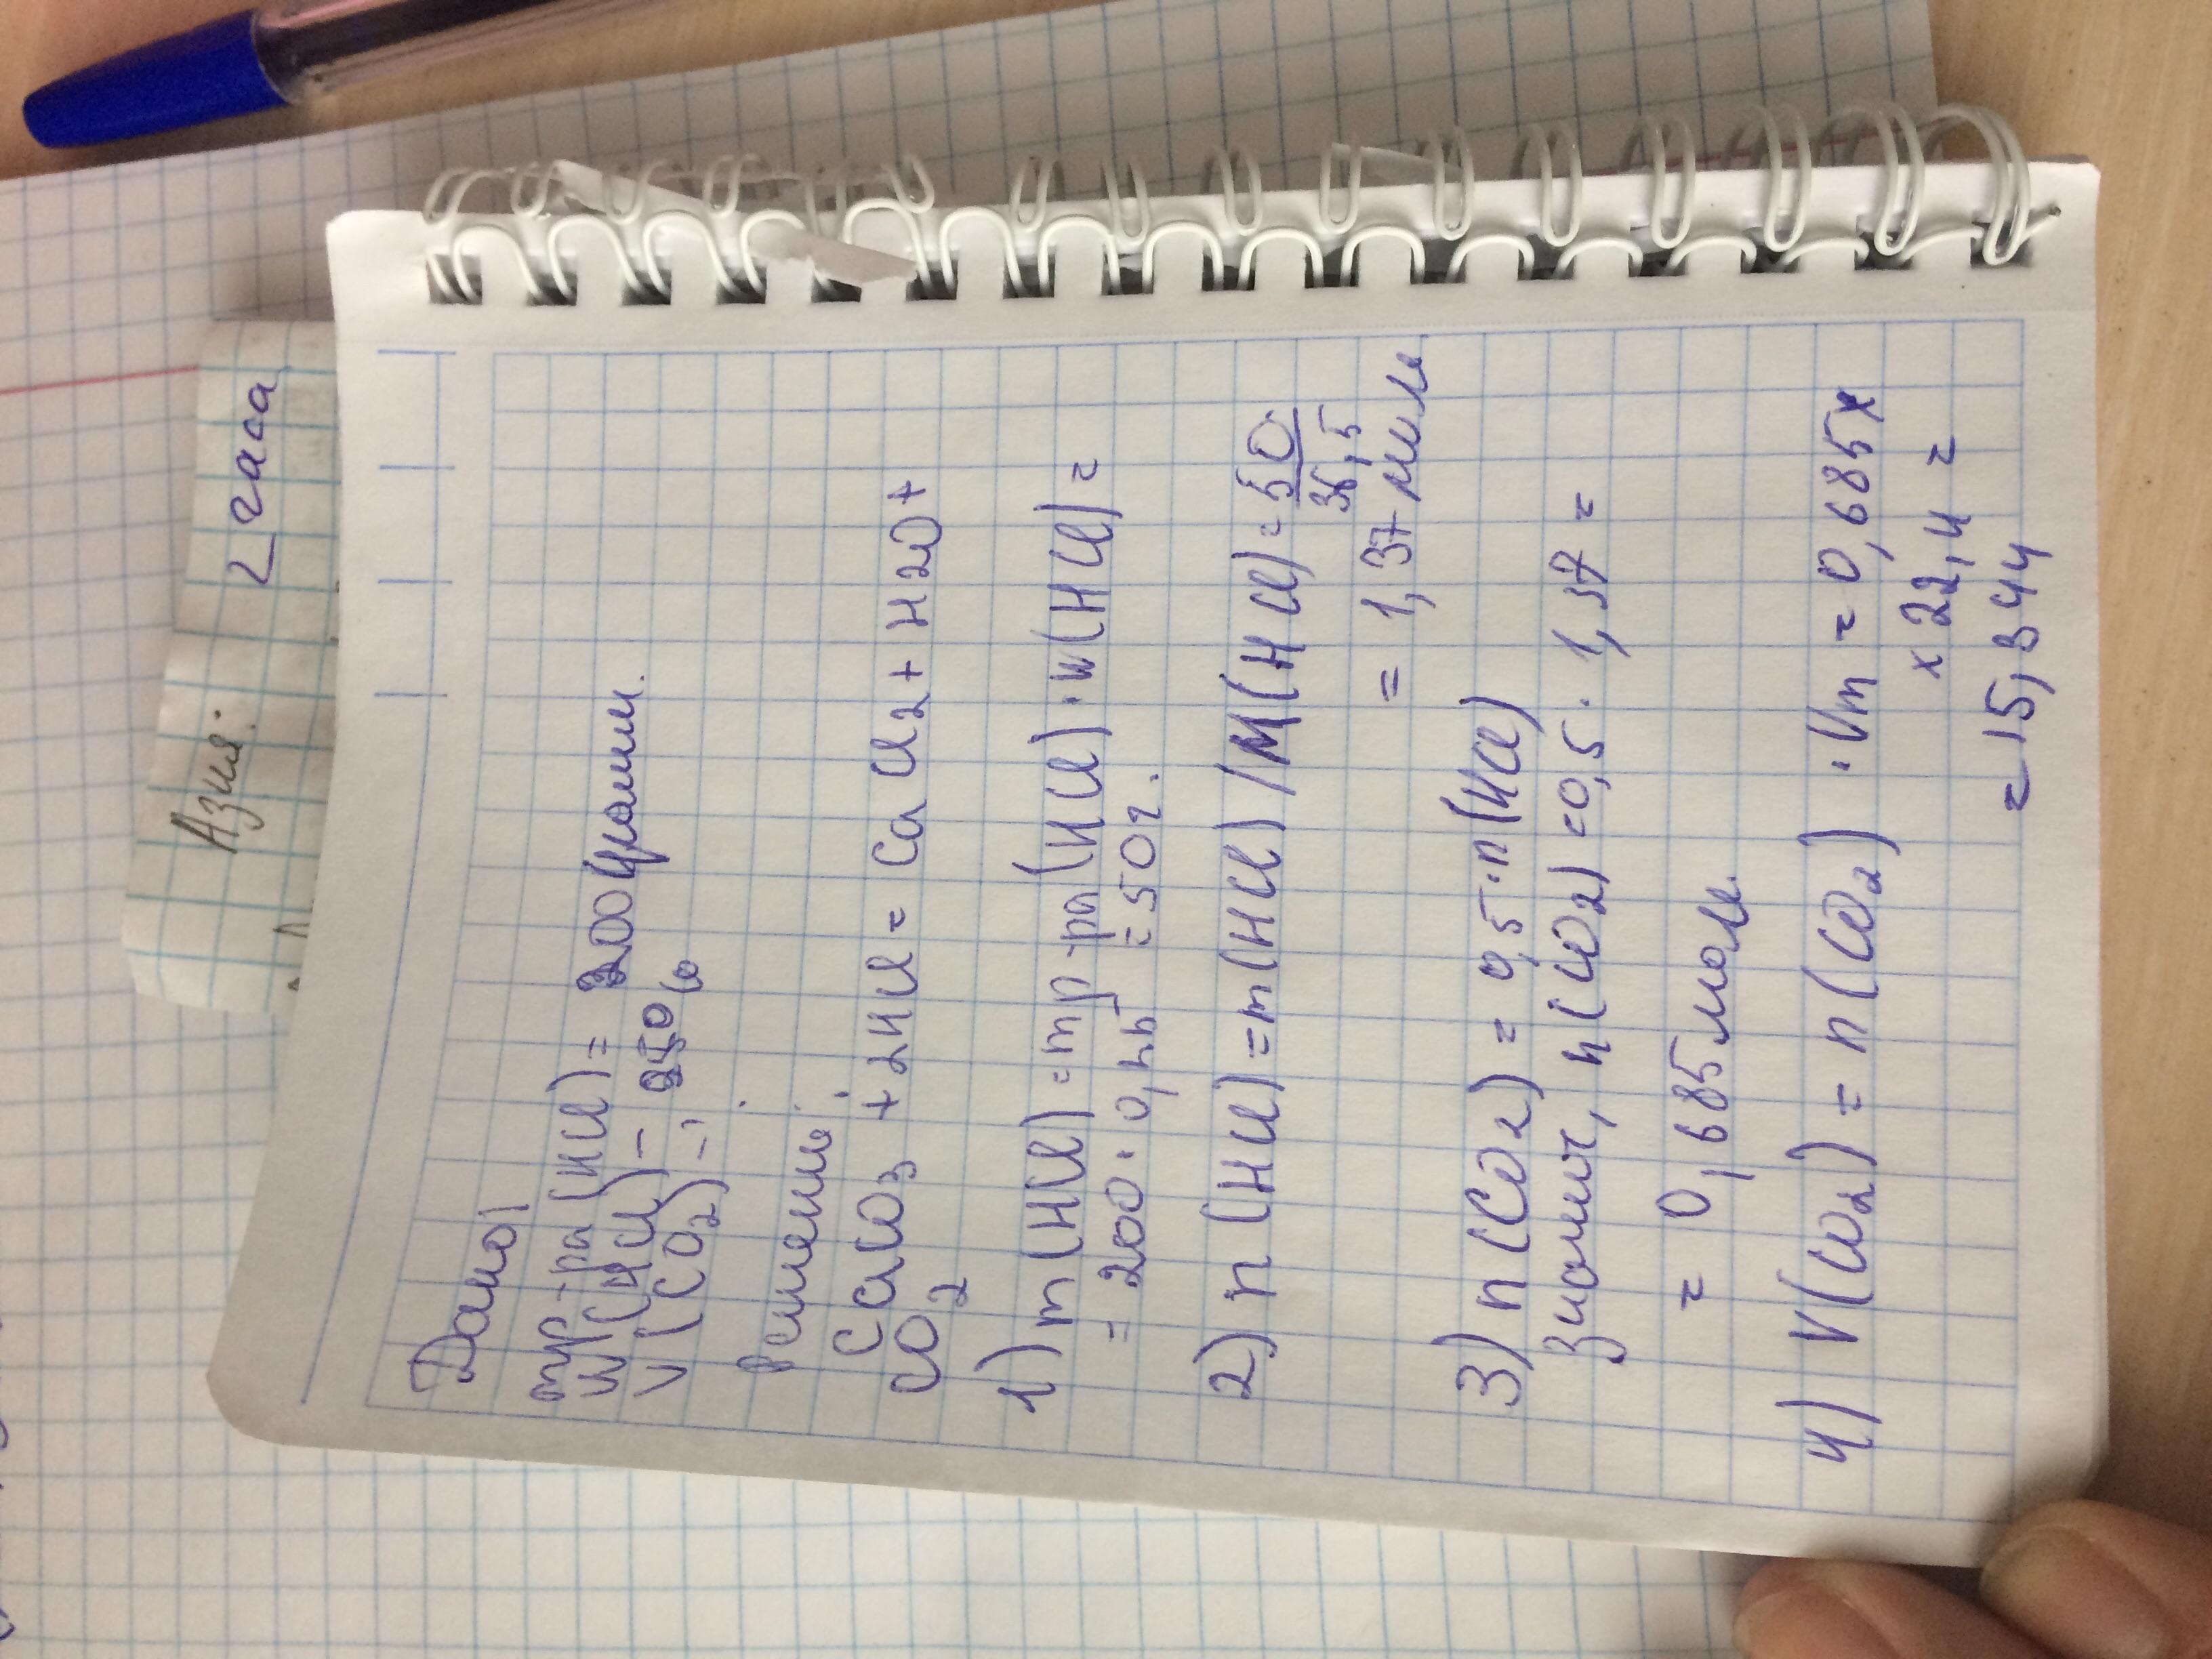 Азия:
2 часа
Дано:
mр-ра(HCl) = 200 грамм.
w(HCl) - 25%
V(CO2) - ?
Решение:
CaCO3 + 2HCl = CaCl2 + H2O +
CO2
1) m(HCl) = mр-ра(HCl) · w(HCl) =
= 200 · 0,25 = 50г.
2) n(HCl) = m(HCl) / M(HCl) = 50
36,5
= 1,37 моль
3) n(CO2) = 0,5 · n(HCl)
Значит, n(CO2) = 0,5 · 1,37 =
= 0,685 моль.
4) V(CO2) = n(CO2) · Vm = 0,685 x
x 22,4 =
= 15,344